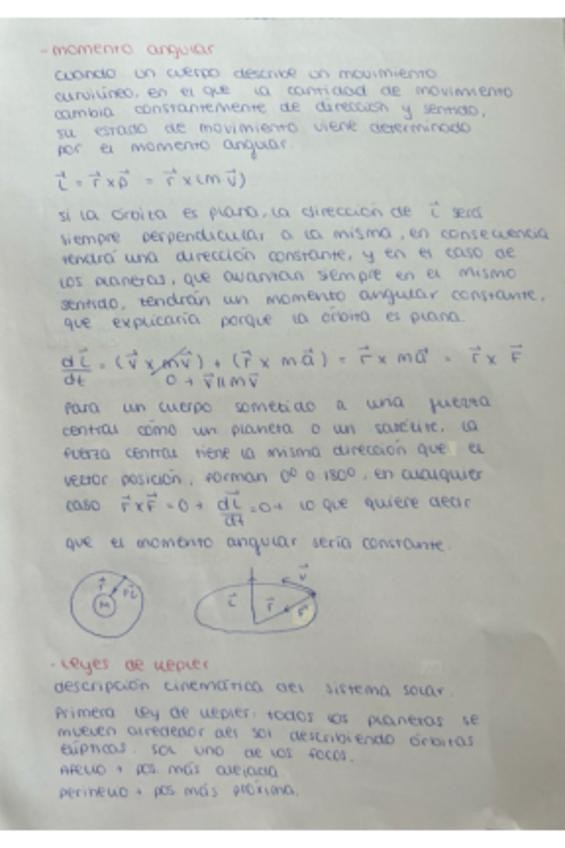 - momento angular
cuando un cuerpo describe un movimiento
curvilíneo, en el que la cantidad de movimiento
cambia constantemente de dirección y sentido,
su estado de movimiento viene determinado
por el momento angular.
L⃗ = r⃗ x p⃗ = r⃗ x (m v⃗)
si la órbita es plana, la dirección de L⃗ será
siempre perpendicular a la misma, en consecuencia
tendrá una dirección constante, y en el caso de
los planetas, que avanzan siempre en el mismo
sentido, tendrán un momento angular constante,
que explicaría porque la órbita es plana.
dL⃗/dt = (v⃗ x mv⃗) + (r⃗ x ma⃗) = r⃗ x ma⃗ = r⃗ x F⃗
0 → v⃗ || mv⃗
Para un cuerpo sometido a una fuerza
central como un planeta o un satélite, la
fuerza central tiene la misma dirección que el
vector posición, forman 0º o 180º, en cualquier
caso r⃗ x F⃗ = 0 → dL⃗/dt = 0 → lo que quiere decir
que el momento angular sería constante.
r⃗ M
L⃗ r⃗ F⃗ v⃗
- Leyes de Kepler
descripción cinemática del sistema solar.
Primera ley de Kepler: todos los planetas se
mueven alrededor del sol describiendo órbitas
elípticas. Sol uno de los focos.
Afelio → pos. más alejada
Perihelio → pos más próxima.